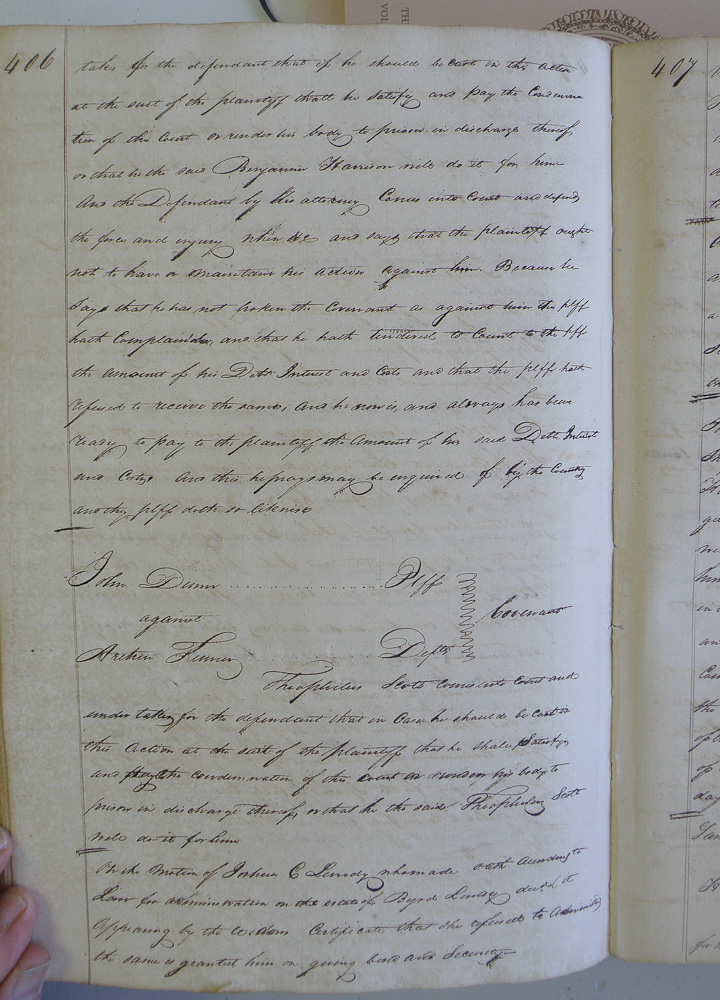 406
takes for the defendant that if he should be cast in this action
at the suit of the plaintiff shall he satisfy and pay the Condemna
tion of the Court or render his body to prison in discharge thereof,
or that he the said Benjamin Harrison will do it for him
And the Defendant by his attorney Comes into Court and defends
the force and injury when &c and says that the plaintiff ought
not to have or maintain his action against him. Because he
Says that he has not broken the Covenant as against him the plff
hath Complained, and that he hath tendered to Count to the plff
the amount of his Debt Interest and Costs and that the plff hath
refused to receive the same; And he now is, and always has been
ready to pay to the plaintiff the Amount of his said Debt Interest
and Costs And this he prays may be enquired of by the Country
and the plff doth so likewise
John Dunn Plff
against Covenant
Defts
Theophilus Scott comes into Court and
undertakes for the defendant that in Case he should be Cast in
this Action at the suit of the plaintiff that he shall Satisfy
and pay the condemnation of the Court or render his body to
prison in discharge thereof or that he the said Theophilus Scott
will do it for him
On the Motion of Joshua C who made oath according to
Law for administration on the estate of Byrd decd it
appearing by the widows Certificate that she refused to Administer
the same is granted him on giving bond and Security
407